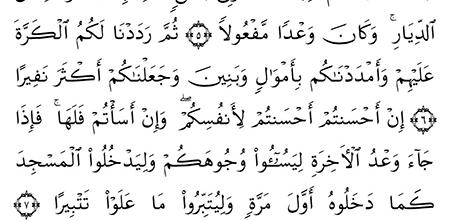 ٱلدِّيَارِ ۚ وَكَانَ وَعْدًا مَّفْعُولًا ﴿٥﴾ ثُمَّ رَدَدْنَا لَكُمُ ٱلْكَرَّةَ
عَلَيْهِمْ وَأَمْدَدْنَـٰكُم بِأَمْوَٰلٍ وَبَنِينَ وَجَعَلْنَـٰكُمْ أَكْثَرَ نَفِيرًا
﴿٦﴾ إِنْ أَحْسَنتُمْ أَحْسَنتُمْ لِأَنفُسِكُمْ ۖ وَإِنْ أَسَأْتُمْ فَلَهَا ۚ فَإِذَا
جَآءَ وَعْدُ ٱلْـَٔاخِرَةِ لِيَسُـۥٓـُٔوا۟ وُجُوهَكُمْ وَلِيَدْخُلُوا۟ ٱلْمَسْجِدَ
كَمَا دَخَلُوهُ أَوَّلَ مَرَّةٍ وَلِيُتَبِّرُوا۟ مَا عَلَوْا۟ تَتْبِيرًا ﴿٧﴾